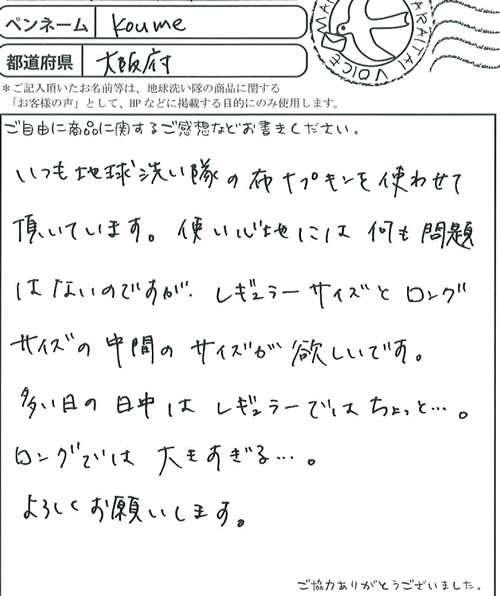 ペンネーム koume
都道府県 大阪府
＊ご記入頂いたお名前等は、地球洗い隊の商品に関する
「お客様の声」として、HPなどに掲載する目的にのみ使用します。
ご自由に商品に関するご感想などお書きください。
いつも地球洗い隊の布ナプキンを使わせて
頂いています。使い心地には何も問題
はないのですが、レギュラーサイズとロング
サイズの中間のサイズが欲しいです。
多い日の日中はレギュラーではちょっと…。
ロングでは大きすぎる…。
よろしくお願いします。
ご協力ありがとうございました。